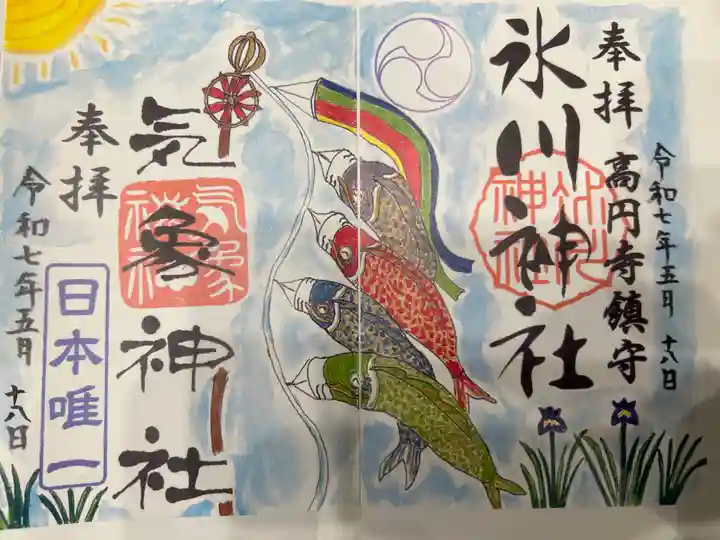 奉拝
高円寺鎮守
令和七年五月十八日
氷川神社
気象神社
奉拝
令和七年五月十八日
日本唯一